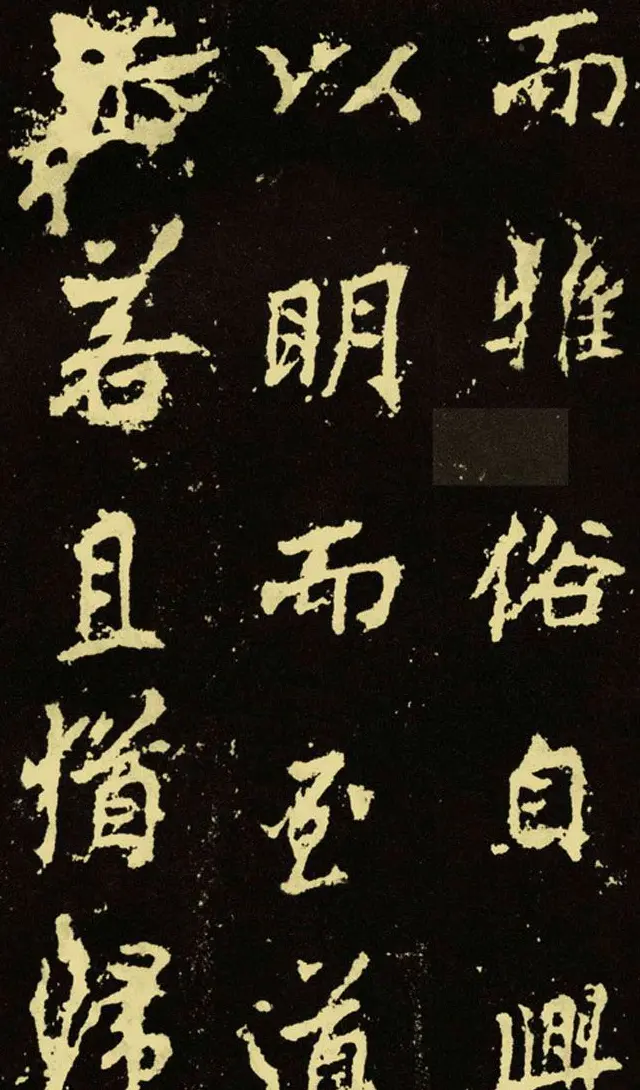 而雅俗自興
以明而至道
若且猶歸